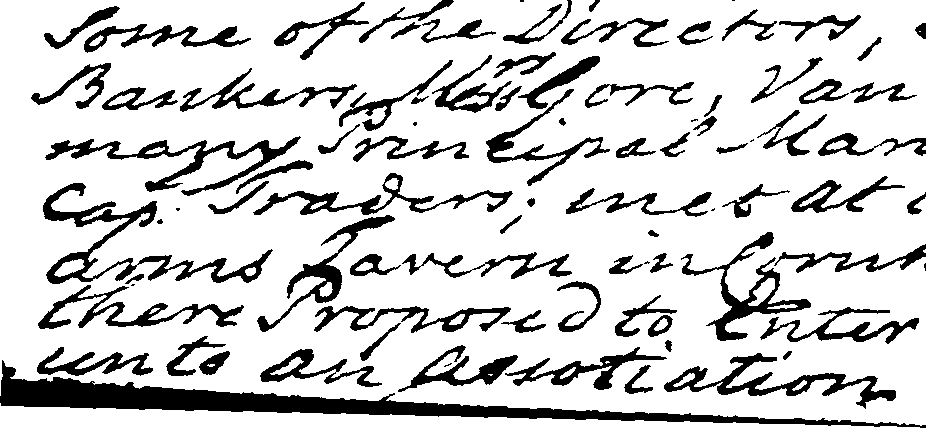 Some of the Directors,
Bankers, Mess.rs Gore, Van
many Principal Man
Cap. Traders; met at
arms Tavern in Corn
there Proposed to Enter
unto an Assotiation